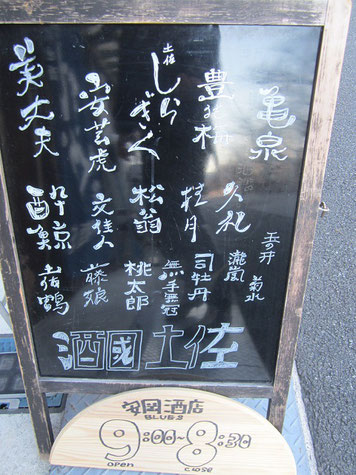 亀泉
豊の梅
土佐
しらぎく
安芸虎
美丈夫
玉の井
久礼
桂月
松翁
文佳人
酔鯨
菊水
瀧嵐
司牡丹
無手無冠
桃太郎
藤娘
土佐鶴
酒國土佐
安岡酒店
BLUES
9:00~8:30
OPEN CLOSE